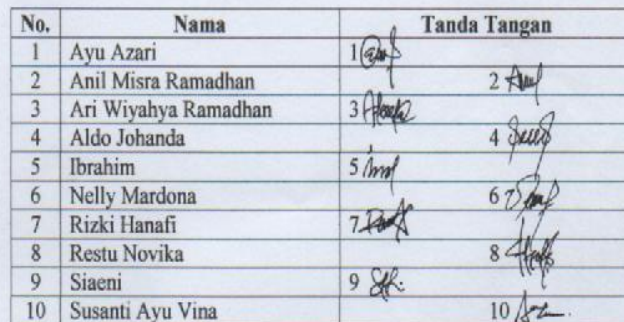 No. Nama Tanda Tangan
1 Ayu Azari 1
2 Anil Misra Ramadhan 2
3 Ari Wiyahya Ramadhan 3
4 Aldo Johanda 4
5 Ibrahim 5
6 Nelly Mardona 6
7 Rizki Hanafi 7
8 Restu Novika 8
9 Siaeni 9
10 Susanti Ayu Vina 10